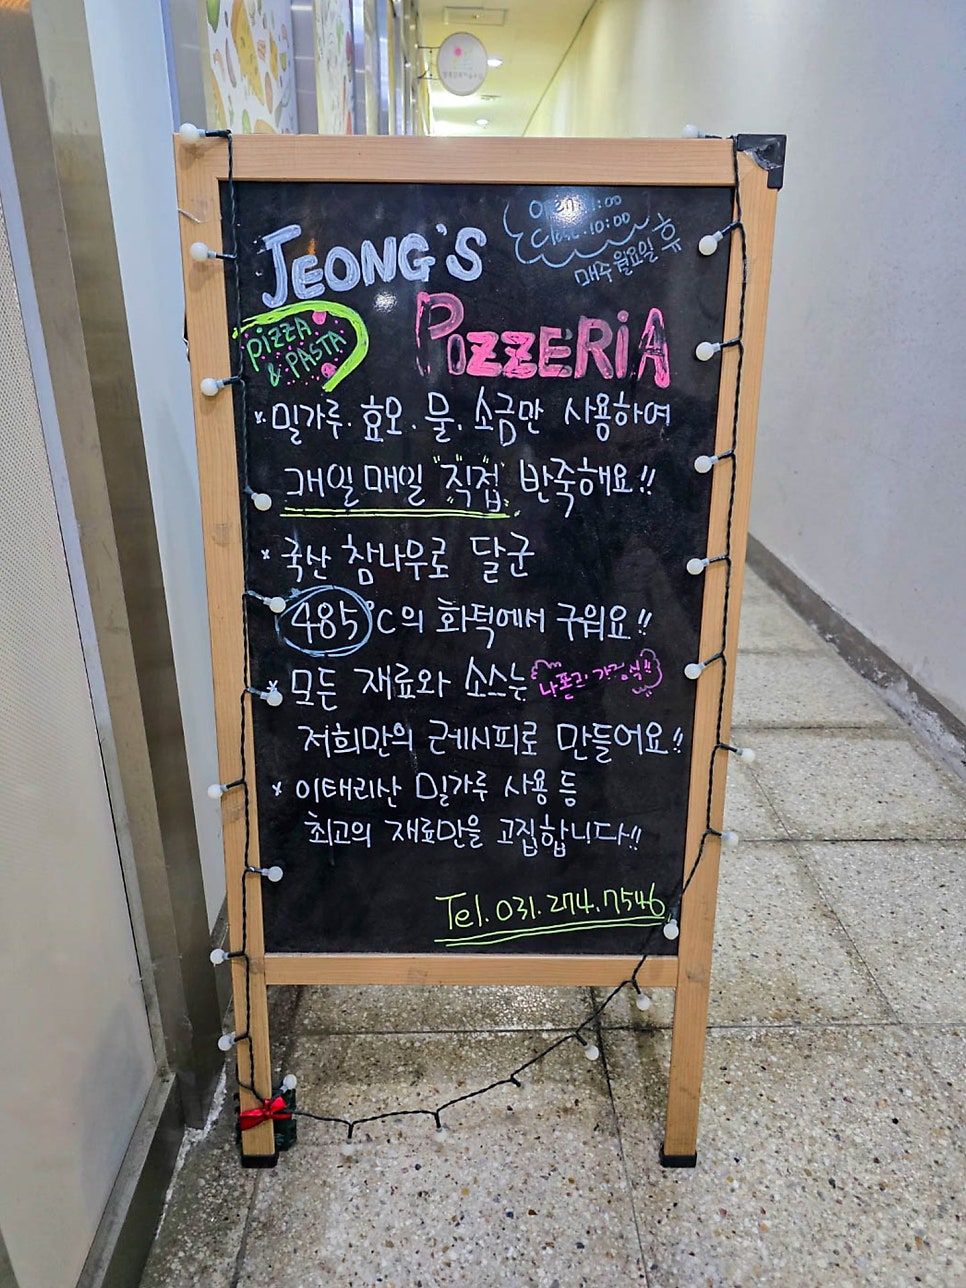 Close 10:00
매주 월요일 휴
JEONG'S
PIZZERIA
PIZZA
& PASTA
* 밀가루. 효모. 물. 소금만 사용하여
매일매일 "직접" 반죽해요!!
* 국산 참나무로 달군
485°C의 화덕에서 구워요!!
* 모든 재료와 소스는
저희만의 레시피로 만들어요!!
* 이태리산 밀가루 사용 등
최고의 재료만을 고집합니다!!
Tel. 031. 274. 7546